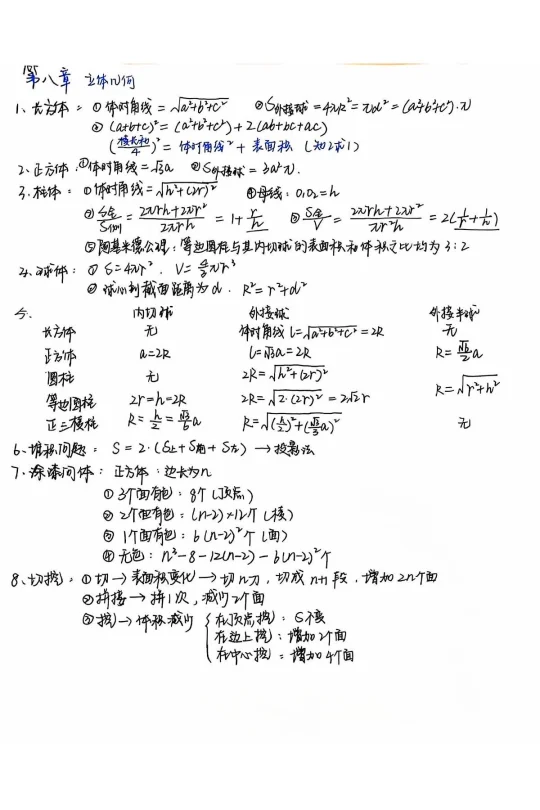 第八章 立体几何
1、长方体：① 体对角线 = √(a²+b²+c²) ② S外接球 = 4πR² = πd² = (a²+b²+c²)·π
③ (a+b+c)² = (a²+b²+c²) + 2(ab+bc+ac)
(棱长和/4)² = 体对角线² + 表面积 (知2求1)
2、正方体：① 体对角线 = √3a ② S外接球 = 3a²π.
3、柱体：① 体对角线 = √(h²+(2r)²) ④ 母线：O₁O₂ = h
② S全/S侧 = (2πrh+2πr²)/(2πrh) = 1 + r/h ③ S全/V = (2πrh+2πr²)/(πr²h) = 2(1/r + 1/h)
⑤ 阿基米德公理：等边圆柱与其内切球的表面积和体积之比均为 3:2
4、球体：① S = 4πr², V = 4/3πr³
② 球心到截面距离为d, R² = r²+d²
5、 内切球 外接球 外接半球
长方体 无 体对角线 l = √(a²+b²+c²) = 2R 无
正方体 a = 2R l = √3a = 2R R = √6/2 a
圆柱 无 2R = √(h²+(2r)²) R = √(r²+h²)
等边圆柱 2r = h = 2R 2R = √(2·(2r)²) = 2√2r
正三棱柱 R = h/2 = √3/6 a R = √((h/2)²+(√3/3 a)²) 无
6、堆积问题：S = 2·(S上+S前+S左) → 投影法
7、涂漆问体：正方体：边长为n
① 3个面有色：8个 (顶点)
② 2个面有色：(n-2)×12个 (棱)
③ 1个面有色：6(n-2)²个 (面)
④ 无色：n³-8-12(n-2)-6(n-2)²个
8、切挖：① 切 → 表面积变化 → 切n刀, 切成n+1段, 增加2n个面
② 拼接 → 拼1次, 减少2个面
③ 挖 → 体积减少 { 在顶点挖：S不变
在边上挖：增加2个面
在中心挖：增加4个面